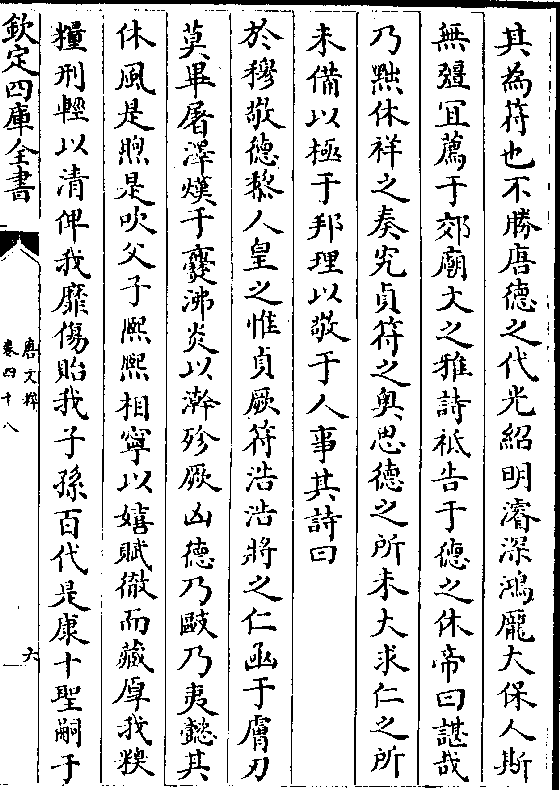 其為符也不勝唐德之代光紹明濬深鴻厖大保人斯
無疆宜薦于郊廟文之雅詩祗告于德之休帝曰諶哉
乃黜休祥之奏究貞符之奥思德之所未大求仁之所
未備以極于邦理以敬于人事其詩曰
於穆敬德黎人皇之惟貞厥符浩浩將之仁函于膚刃
莫畢屠澤熯于爨沸炎以澣殄厥凶德乃敺乃夷懿其
休風是煦是吹父子熙熙相寧以嬉賦徹而藏厚我糗
糧刑輕以清俾我靡傷貽我子孫百代是康十聖嗣于
欽定四庫全書
唐文粹
卷四十八
六